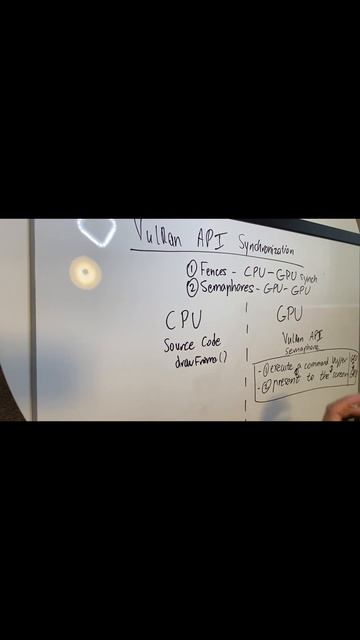 Vulkan API Synchronization
① Fences - CPU-GPU Synch
② Semaphores - GPU-GPU
CPU
Source Code
drawFrame()
GPU
Vulkan API
semaphore
- ① execute command buffer
- ② present to the screen